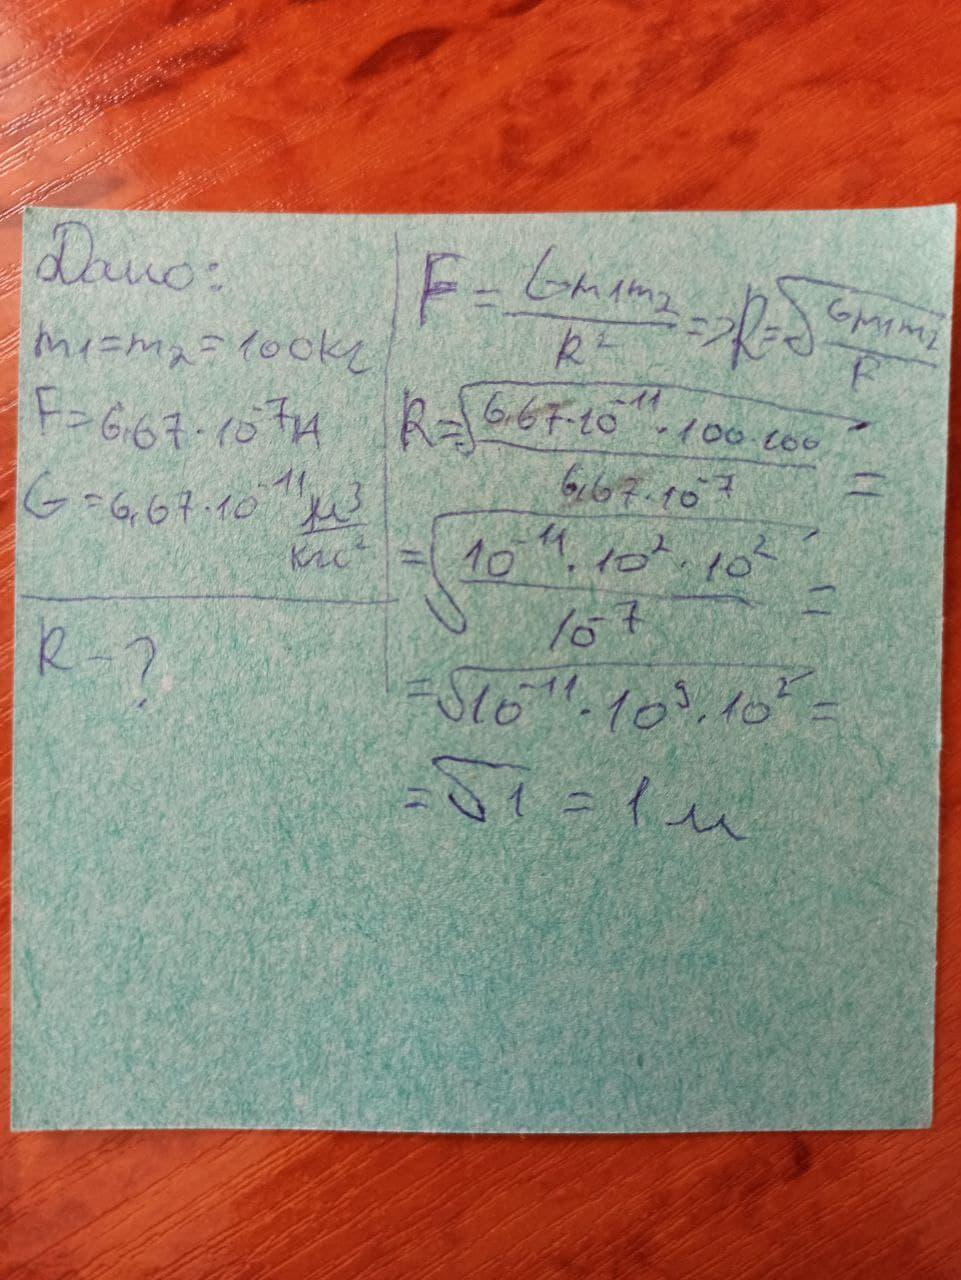 Дано:
m1=m2=100кг
F=6,67·10^-7Н
G=6,67·10^-11 м^3/кгс^2
R-?
F=Gm1m2/R^2=>R=√(Gm1m2/F)
R=√(6,67·10^-11·100·100/6,67·10^-7)=
=√(10^-11·10^2·10^2/10^-7)=
=√(10^-11·10^9·10^2)=
=√1=1м